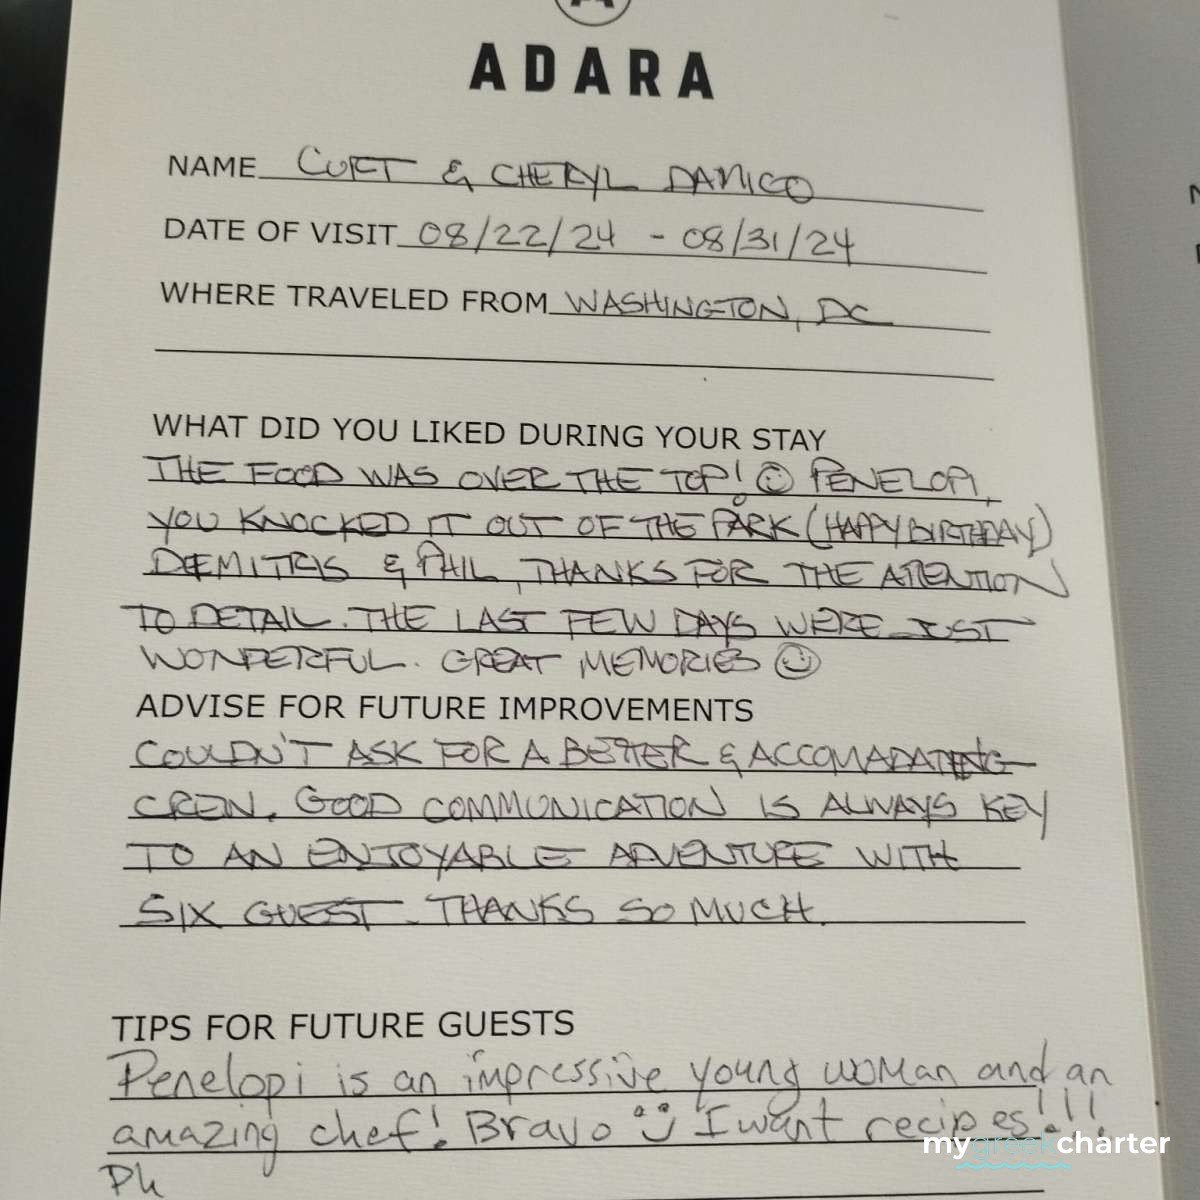 ADARA
NAME CURT & CHERYL DANICO
DATE OF VISIT 08/22/24 - 08/31/24
WHERE TRAVELED FROM WASHINGTON, DC
WHAT DID YOU LIKED DURING YOUR STAY
THE FOOD WAS OVER THE TOP! ☺ PENELOPI,
YOU KNOCKED IT OUT OF THE PARK (HAPPY BIRTHDAY)
DEMITRIS & PHIL, THANKS FOR THE ATENTION
TO DETAIL. THE LAST FEW DAYS WERE JUST
WONDERFUL. GREAT MEMORIES ☺
ADVISE FOR FUTURE IMPROVEMENTS
COULDN'T ASK FOR A BETTER & ACCOMADATING
CREW. GOOD COMMUNICATION IS ALWAYS KEY
TO AN ENJOYABLE ADVENTURE WITH
SIX GUEST. THANKS SO MUCH.
TIPS FOR FUTURE GUESTS
Penelopi is an impressive young woman and an
amazing chef! Bravo ☺ I want recipes!!!
mygreekcharter